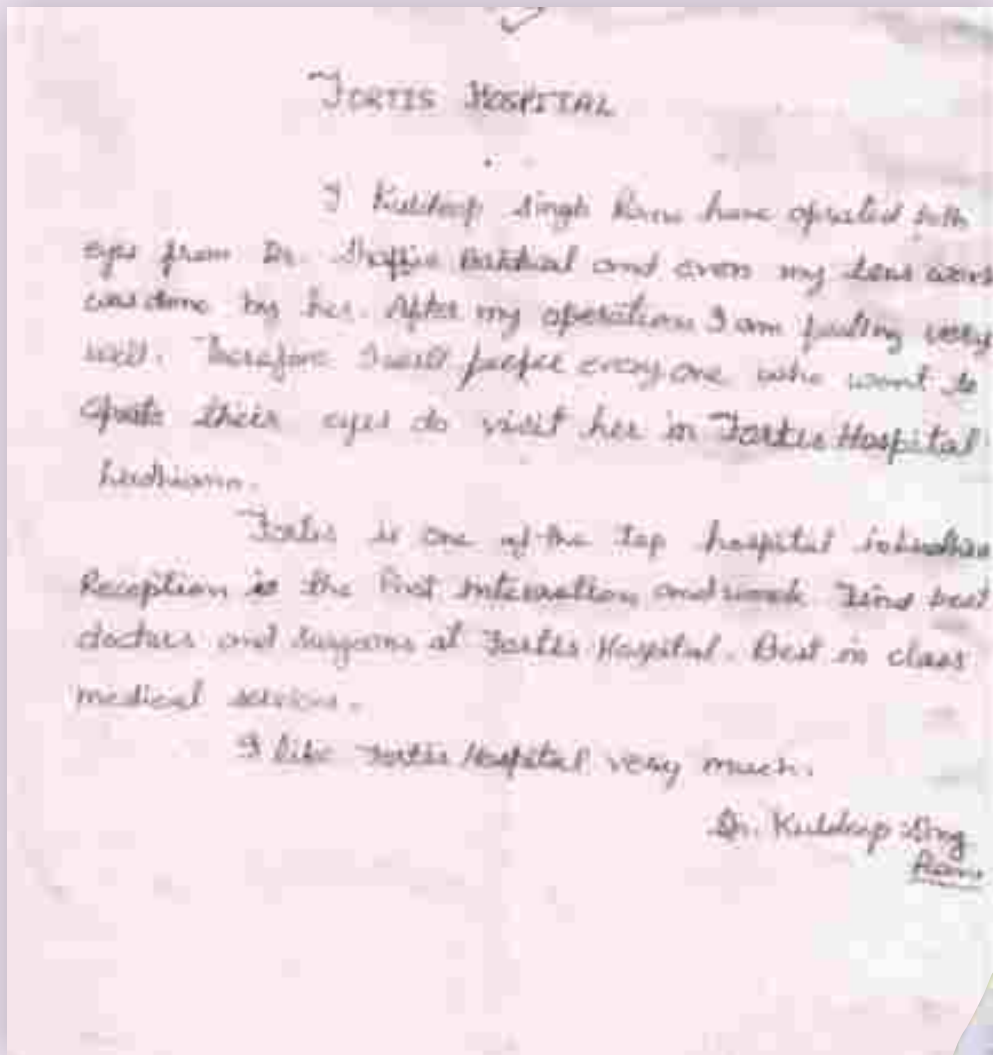 FORTIS HOSPITAL
I Kuldeep Singh have operated both
eyes from Dr. and even my lens
was done by her. After my operations I am feeling very
well. Therefore I will prefer every one who want to
operate their eyes do visit her in Fortis Hospital
Ludhiana.
Fortis is one of the top hospital
Reception is the first interaction and Find best
doctors and Surgeons at Fortis Hospital. Best in class
medical services.
I like Fortis Hospital very much.
Dr. Kuldeep Sing